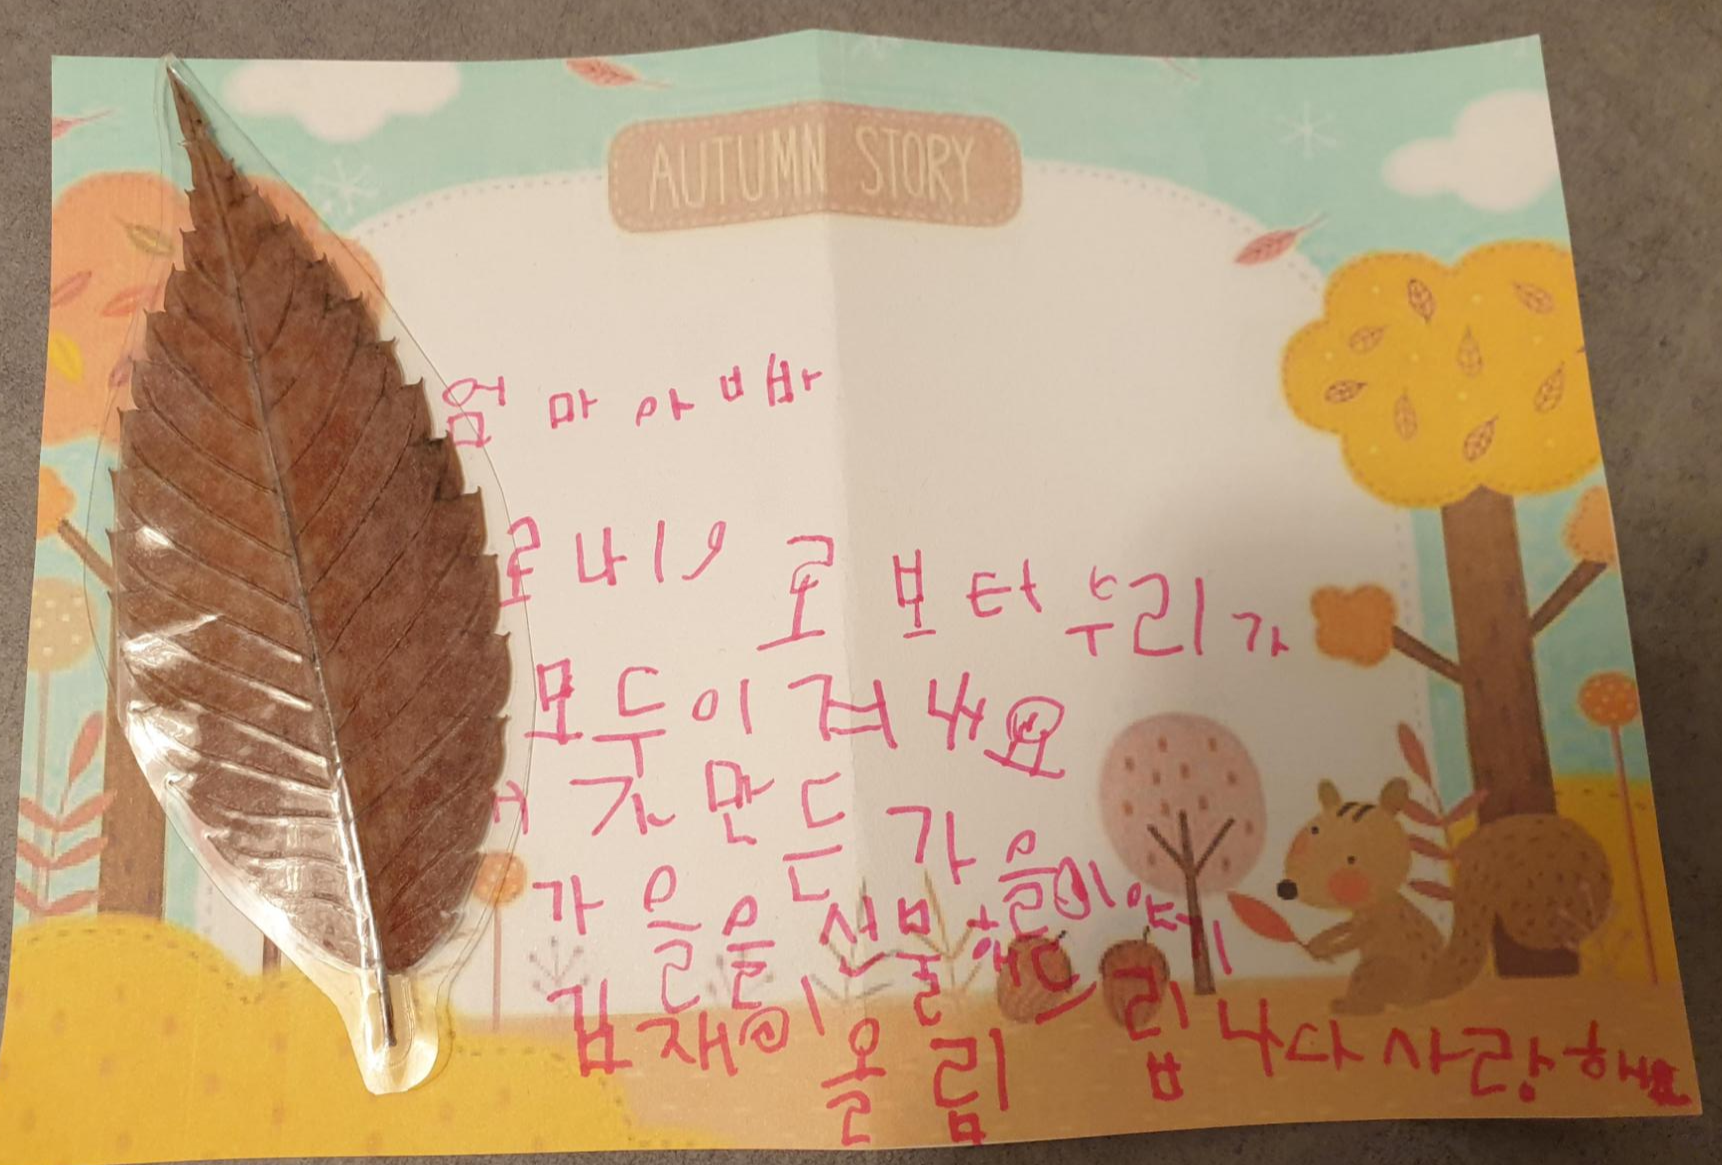 AUTUMN STORY
엄마아빠
로나19로부터우리가
모두이겨내요
가만드 가을이
가을을선물해드립니다사랑해요
김재이올림